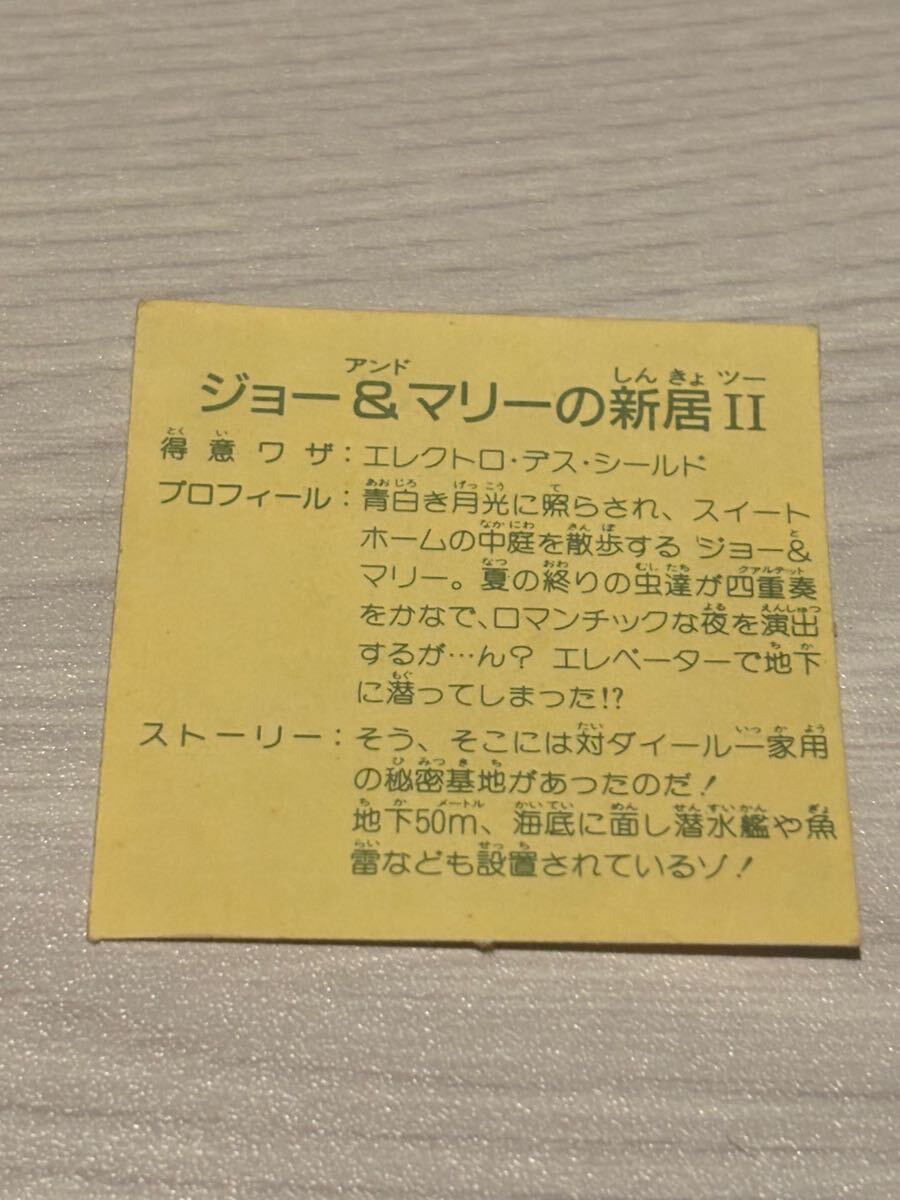 ジョー&マリーの新居II
得意ワザ:エレクトロ・デス・シールド
プロフィール:青白き月光に照らされ、スイート
ホームの中庭を散歩する ジョー&
マリー。夏の終りの虫達が四重奏
をかなで、ロマンチックな夜を演出
するが…ん? エレベーターで地下
に潜ってしまった!?
ストーリー:そう、そこには対ダイール一家用
の秘密基地があったのだ!
地下50m、海底に面し潜水艦や魚
雷なども設置されているゾ!